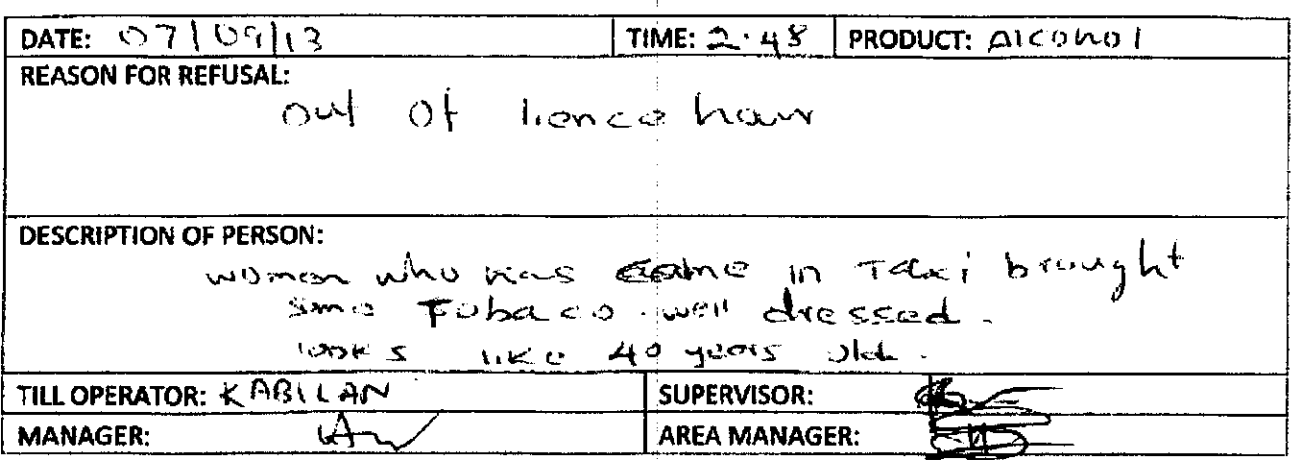 DATE: 07/09/13 TIME: 2.48 PRODUCT: Alcohol
REASON FOR REFUSAL:
out of lience hour
DESCRIPTION OF PERSON:
women who has came in Taxi brought
some Tobacco. well dressed.
looks like 40 years old.
TILL OPERATOR: KABILAN SUPERVISOR:
MANAGER: AREA MANAGER: